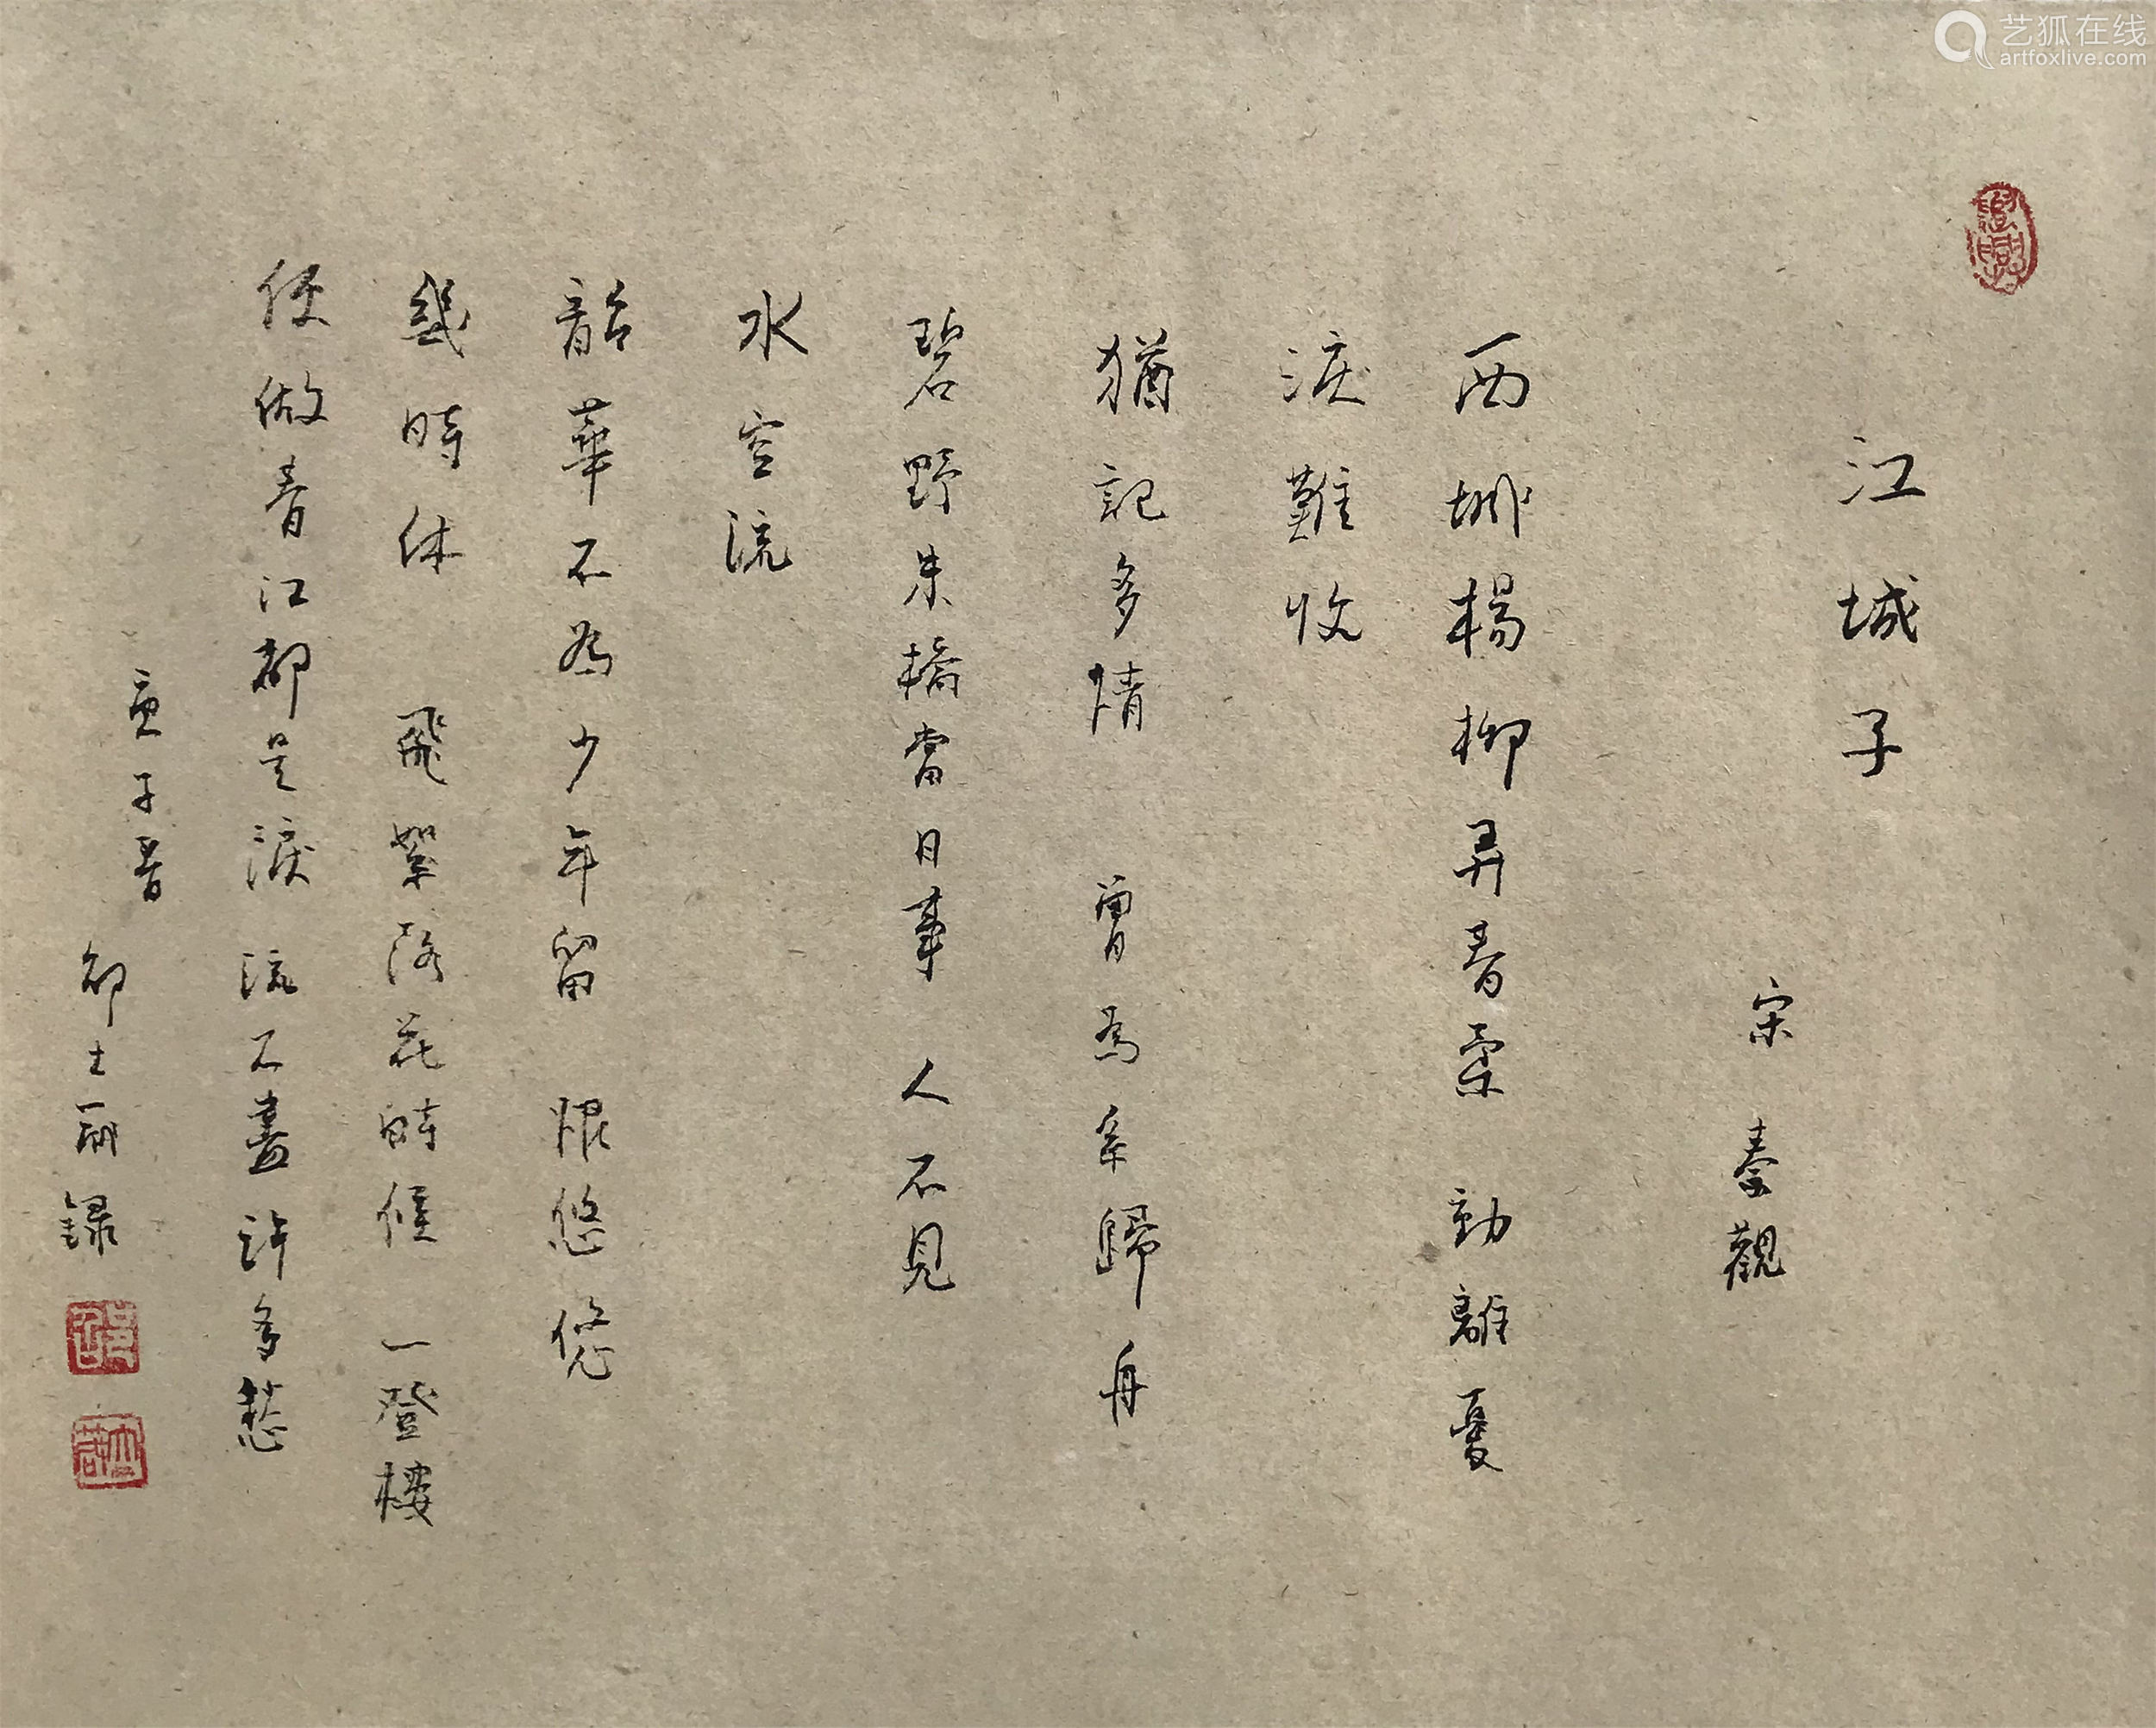 艺狐在线
artfoxlive.com
江城子
宋 秦觀
西城楊柳弄春柔 動離憂
淚難收
猶記多情 曾為系歸舟
碧野朱橋當日事 人不見
水空流
韶華不為少年留 恨悠悠
幾時休 飛絮落花時候 一登樓
便做春江都是淚 流不盡許多愁
庚子春
士丽録